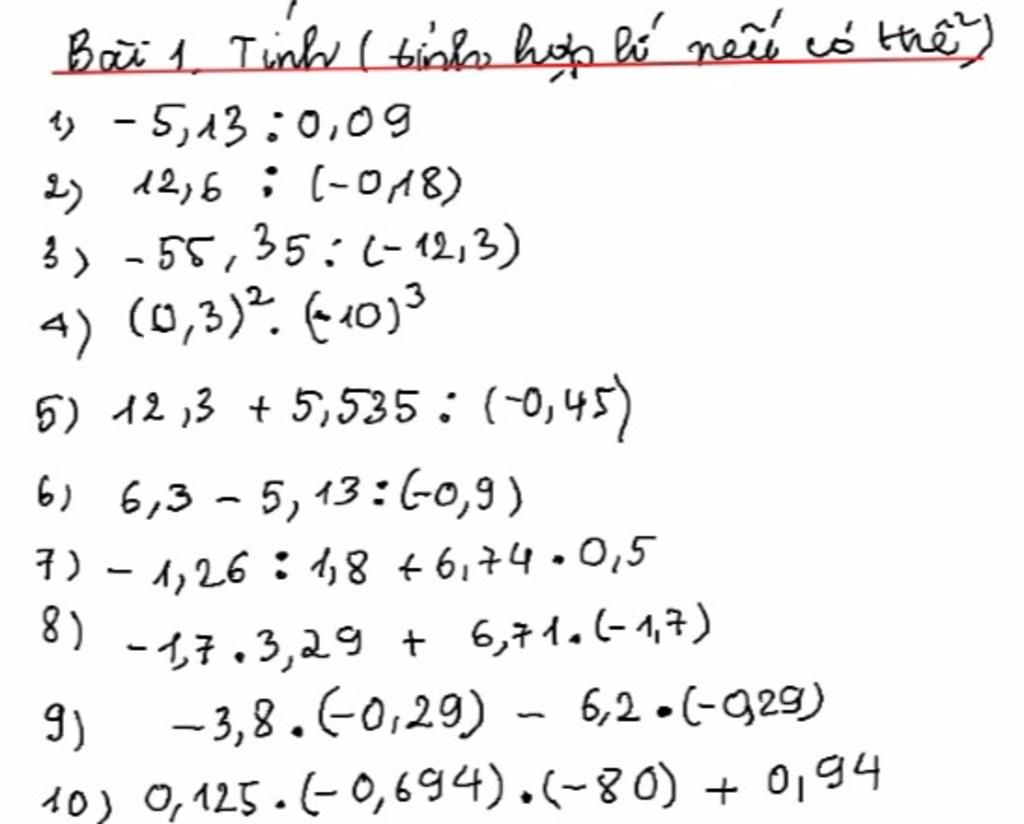 Bài 1. Tính (tính hợp lí nếu có thể)
1) - 5,13 : 0,09
2) 12,6 : (-0,18)
3) -55,35 : (-12,3)
4) (0,3)². (-10)³
5) 12,3 + 5,535 : (-0,45)
6) 6,3 - 5,13 : (-0,9)
7) - 1,26 : 1,8 + 6,74 . 0,5
8) -1,7 . 3,29 + 6,71 . (-1,7)
9) -3,8 . (-0,29) - 6,2 . (-0,29)
10) 0,125 . (-0,694) . (-80) + 0,94